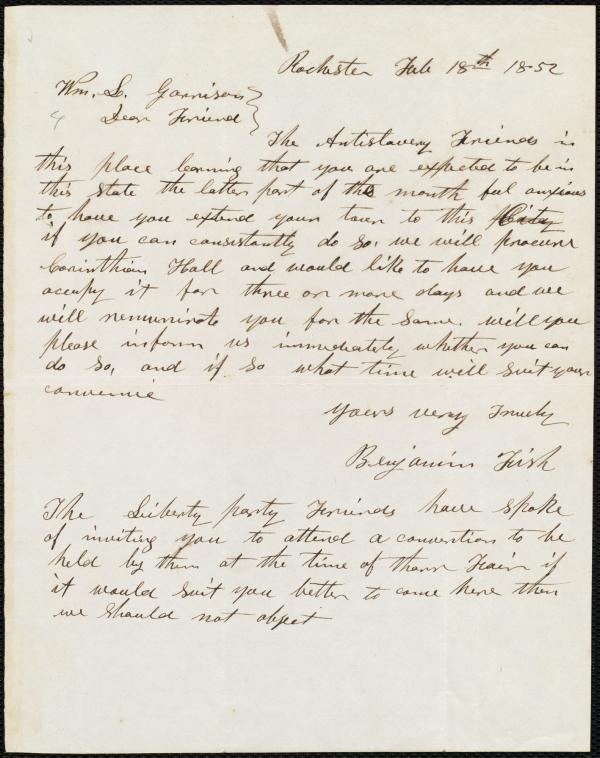 Rochester Feb 18th 1852
Wm. L. Garrison
Dear Friend
The Antislavery Friends in
this place learning that you are expected to be in
this state the latter part of this month ful anxious
to have you extend your tour to this City
if you can consistantly do so, we will procure
Corinthian Hall and would like to have you
occupy it for three or more days and we
will remunirate you for the same. will you
please inform us immediately whether you can
do so, and if so what time will suit your
convenie
yours very Truely
Benjamin Fish
The Liberty party Friends have spoke
of inviting you to attend a convention to be
held by them at the time of thare Fair if
it would suit you better to come here then
we should not object